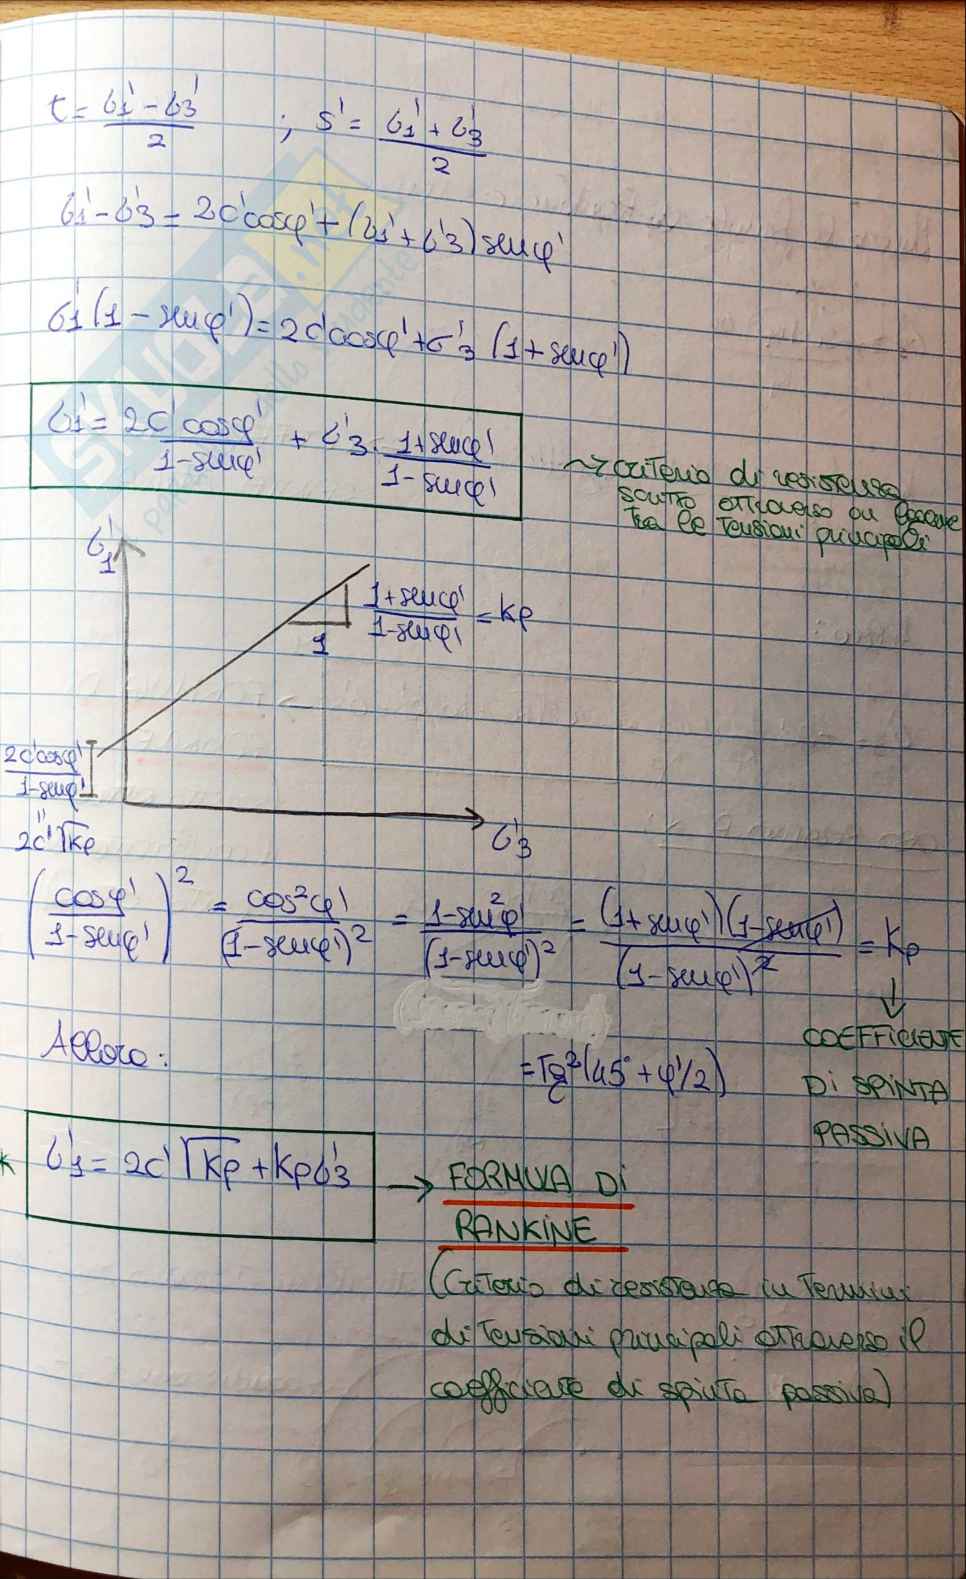 t = (σ'1 - σ'3)/2 ; s' = (σ'1 + σ'3)/2
σ'1 - σ'3 = 2c'cosφ' + (σ'1 + σ'3) senφ'
σ'1 (1 - senφ') = 2c'cosφ' + σ'3 (1 + senφ')
σ'1 = 2c' cosφ'/(1 - senφ') + σ'3 · (1 + senφ')/(1 - senφ')
~> criterio di resistenza
scritto attraverso un legame
tra le tensioni principali
σ'1
(1 + senφ')/(1 - senφ') = Kp
1
2c'cosφ'/(1 - senφ')
"
2c'√Kp
σ'3
(cosφ'/(1 - senφ'))² = cos²φ'/(1 - senφ')² = (1 - sen²φ')/(1 - senφ')² = (1 + senφ')(1 - senφ')/(1 - senφ')² = Kp
↓
COEFFICIENTE
DI SPINTA
PASSIVA
Allora:
= Tg²(45° + φ'/2)
σ'1 = 2c' √Kp + Kp σ'3 → FORMULA DI
RANKINE
(Criterio di resistenza in Termini
di Tensioni principali attraverso il
coefficiente di spinta passiva)
SKUOLA.net